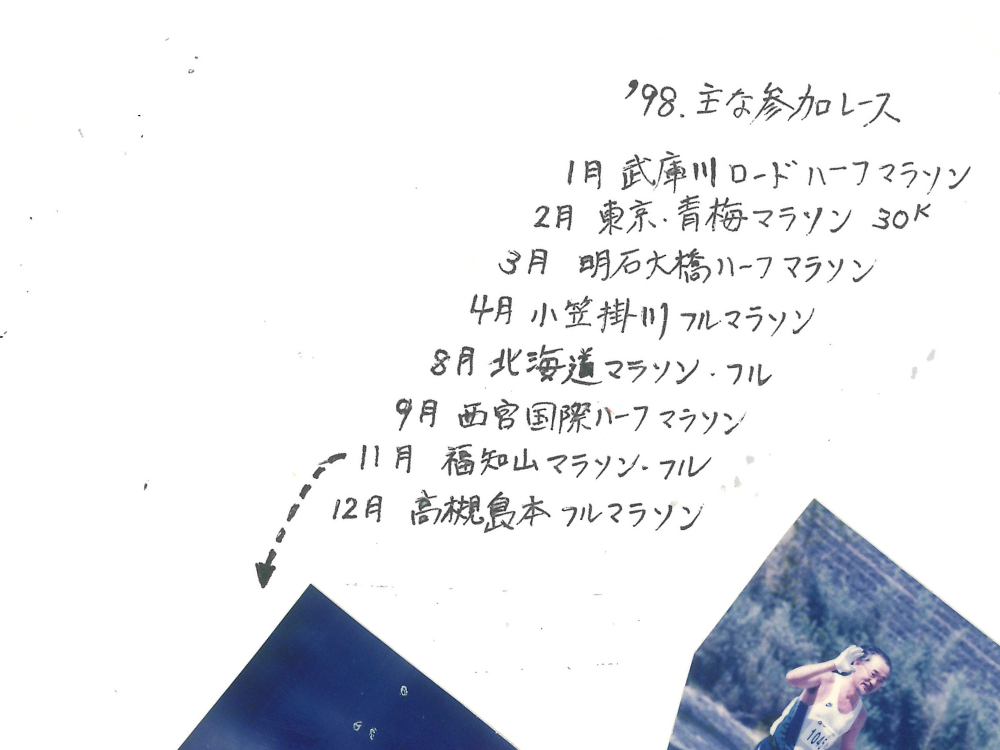 '98.主な参加レース
1月 武庫川ロードハーフマラソン
2月 東京・青梅マラソン 30K
3月 明石大橋ハーフマラソン
4月 小笠掛川フルマラソン
8月 北海道マラソン・フル
9月 西宮国際ハーフマラソン
11月 福知山マラソン・フル
12月 高槻島本フルマラソン